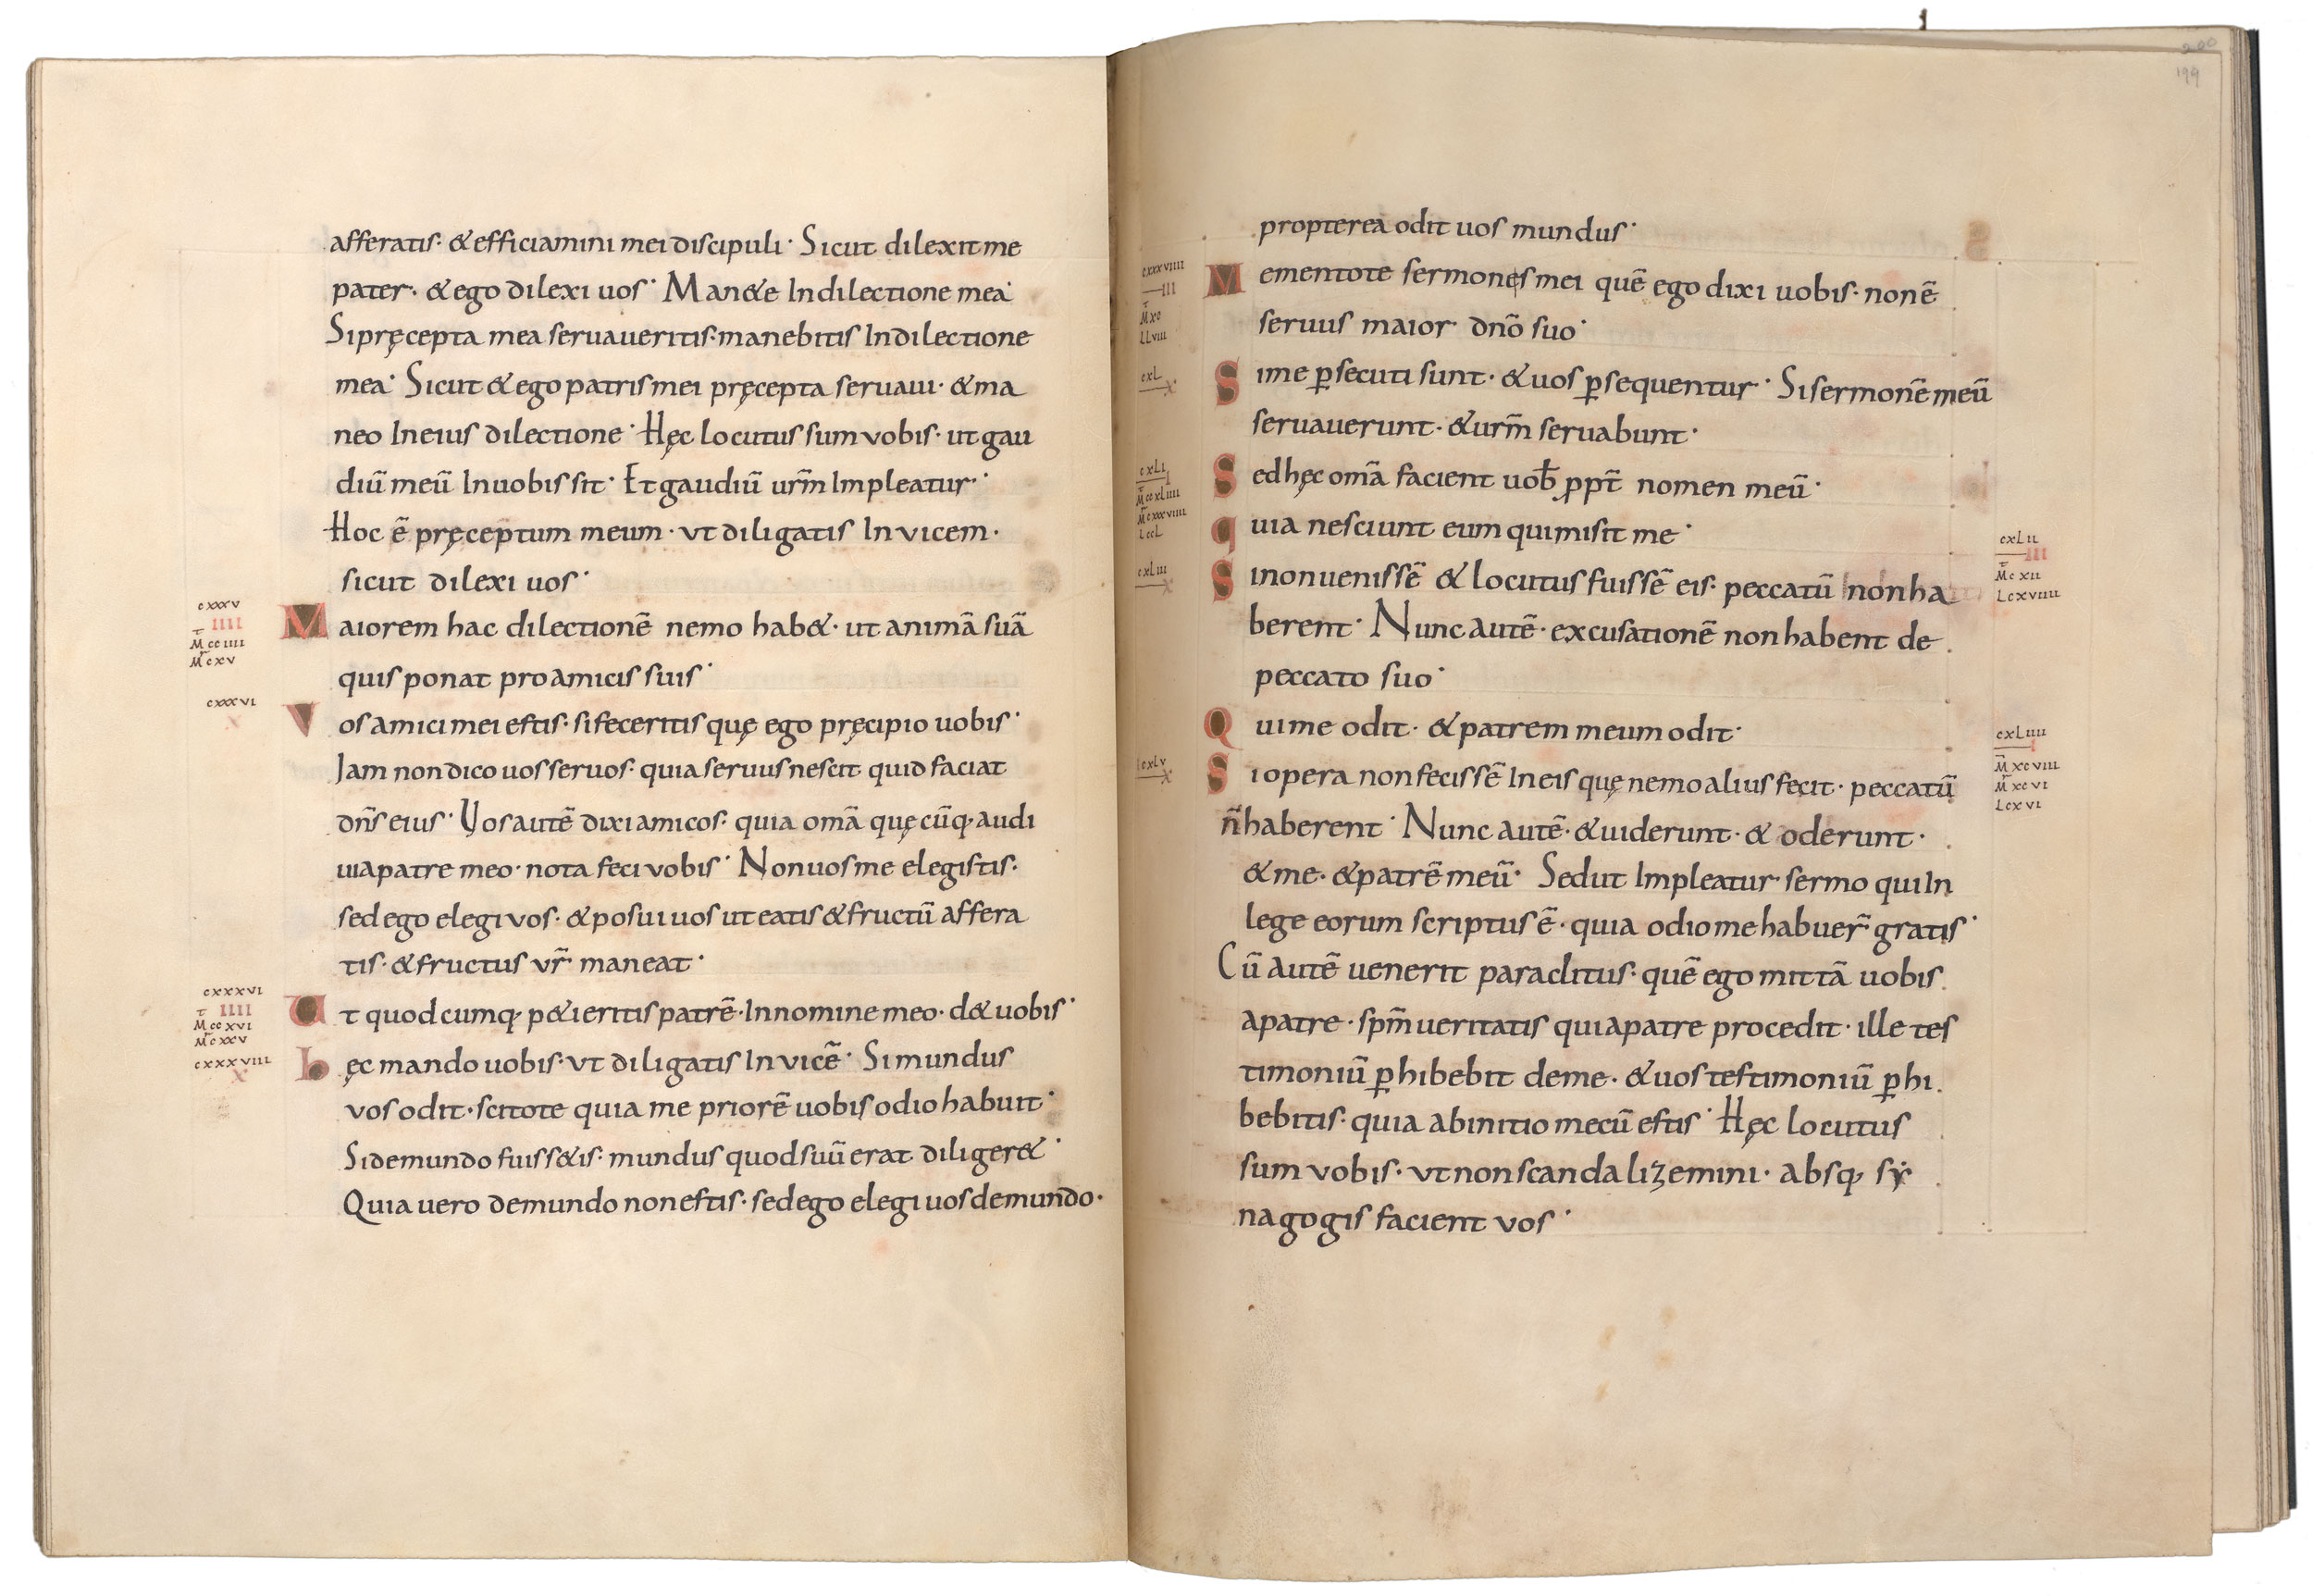 afferatis· & efficiamini mei discipuli· Sicut dilexit me
pater· & ego dilexi uos· Man&e In dilectione mea·
Si pręcepta mea seruaueritis· manebitis In dilectione
mea· Sicut & ego patris mei pręcepta seruaui· & ma
neo In eius dilectione· Hęc locutus sum vobis· ut gau
diū meū In uobis sit· Et gaudiū urm̄ Impleatur·
Hoc ē pręceptum meum· vt diligatis Invicem·
sicut dilexi uos·
cxxxv
IIII
Mccıııı
Mcxv
Maiorem hac dilectionē nemo hab&· ut animā suā
quis ponat pro amicis suis·
cxxxvı
x
Vos amici mei estis· si feceritis quę ego pręcipio uobis·
Iam non dico uos seruos· quia seruus nescit quid faciat
dn̄s eius· Vos autē dixi amicos· quia omā quęcūq· audi
ui a patre meo· nota feci vobis· Non uos me elegistis·
sed ego elegi vos· & posui uos ut eatis & fructū affera
tis· & fructus vr̄ maneat·
cxxxvı
IIII
Mccxvı
Mcxxv
Ut quodcumq· p&ieritis patrē· In nomine meo· d& uobis·
cxxxvııı
x
hęc mando uobis· vt diligatis Invicē· Si mundus
vos odit· scitote quia me priorē uobis odio habuit·
Si de mundo fuiss&is· mundus quod suū erat diliger&·
Quia uero de mundo non estis· sed ego elegi uos de mundo·
200
199
propterea odit uos mundus·
cxxxvıııı
III
Mxc
LLvııı
Mementote sermones mei quē ego dixi uobis· non ē
seruus maior dn̄o suo·
cxL
x
Si me p̱secuti sunt· & uos p̱sequentur· Si sermonē meū
seruauerunt· & urm̄ seruabunt·
cxLı
I
MccxLıııı
Mcxxxvıııı
LccL
Sed hęc omā facient uob̄ ꝓpt̄ nomen meū·
quia nesciunt eum qui misit me·
cxLıı
III
Mcxıı
Lcxvıııı
cxLııı
x
Si non uenissē & locutus fuissē eis· peccatū non ha
berent· Nunc autē· excusationē non habent de
peccato suo·
cxLıııı
I
Mxcvııı
Mxcvı
Lcxvı
Qui me odit· & patrem meum odit·
cxLv
x
Si opera non fecissē In eis quę nemo alius fecit· peccatū
n̄ haberent· Nunc autē· & uiderunt· & oderunt·
& me· & patrē meū· Sed ut Impleatur sermo qui In
lege eorum scriptus ē· quia odio me habuer̄ gratis·
Cū autē uenerit paraclitus· quē ego mittā uobis
a patre· spm̄ ueritatis qui a patre procedit· ille tes
timoniū p̱hibebit de me· & uos testimoniū p̱hi
bebitis· quia ab initio mecū estis· Hęc locutus
sum vobis· vt non scandalizemini· absq· sẏ
nagogis facient vos·